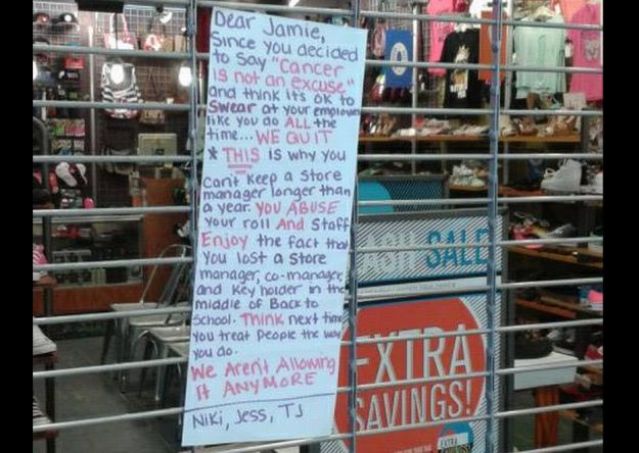 Dear Jamie,
Since you decided
to say "Cancer
is not an excuse"
and think it's ok to
swear at your
like you do ALL the
time... WE QUIT
* THIS is why you
Can't keep a store
manager longer than
a year. YOU ABUSE
your roll And Staff
Enjoy the fact that
you lost a store
manager, co-manager,
and Key holder in the
middle of Back to
School. Think next time
you treat people the way
you do.
We Aren't Allowing
It ANYMORE
Niki, Jess, TJ
SALE
EXTRA
SAVINGS!
EXTRA